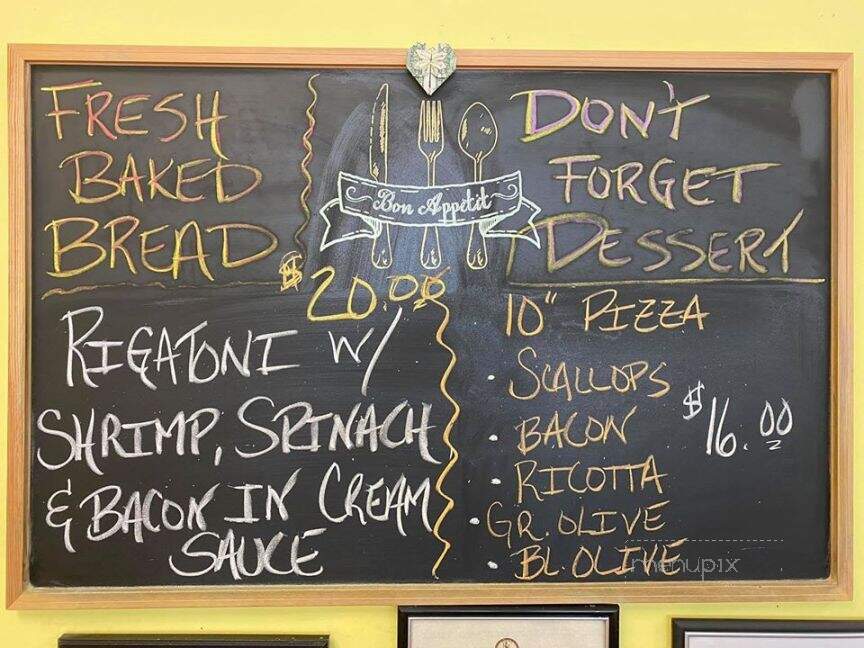 FRESH
BAKED
BREAD
Bon Appétit
DON'T
FORGET
DESSERT
$20.00
RIGATONI W/
SHRIMP, SPINACH
& BACON IN CREAM
SAUCE
10" PIZZA
• SCALLOPS
$16.00
• BACON
• RICOTTA
• GR. OLIVE
• BL. OLIVE
menupix